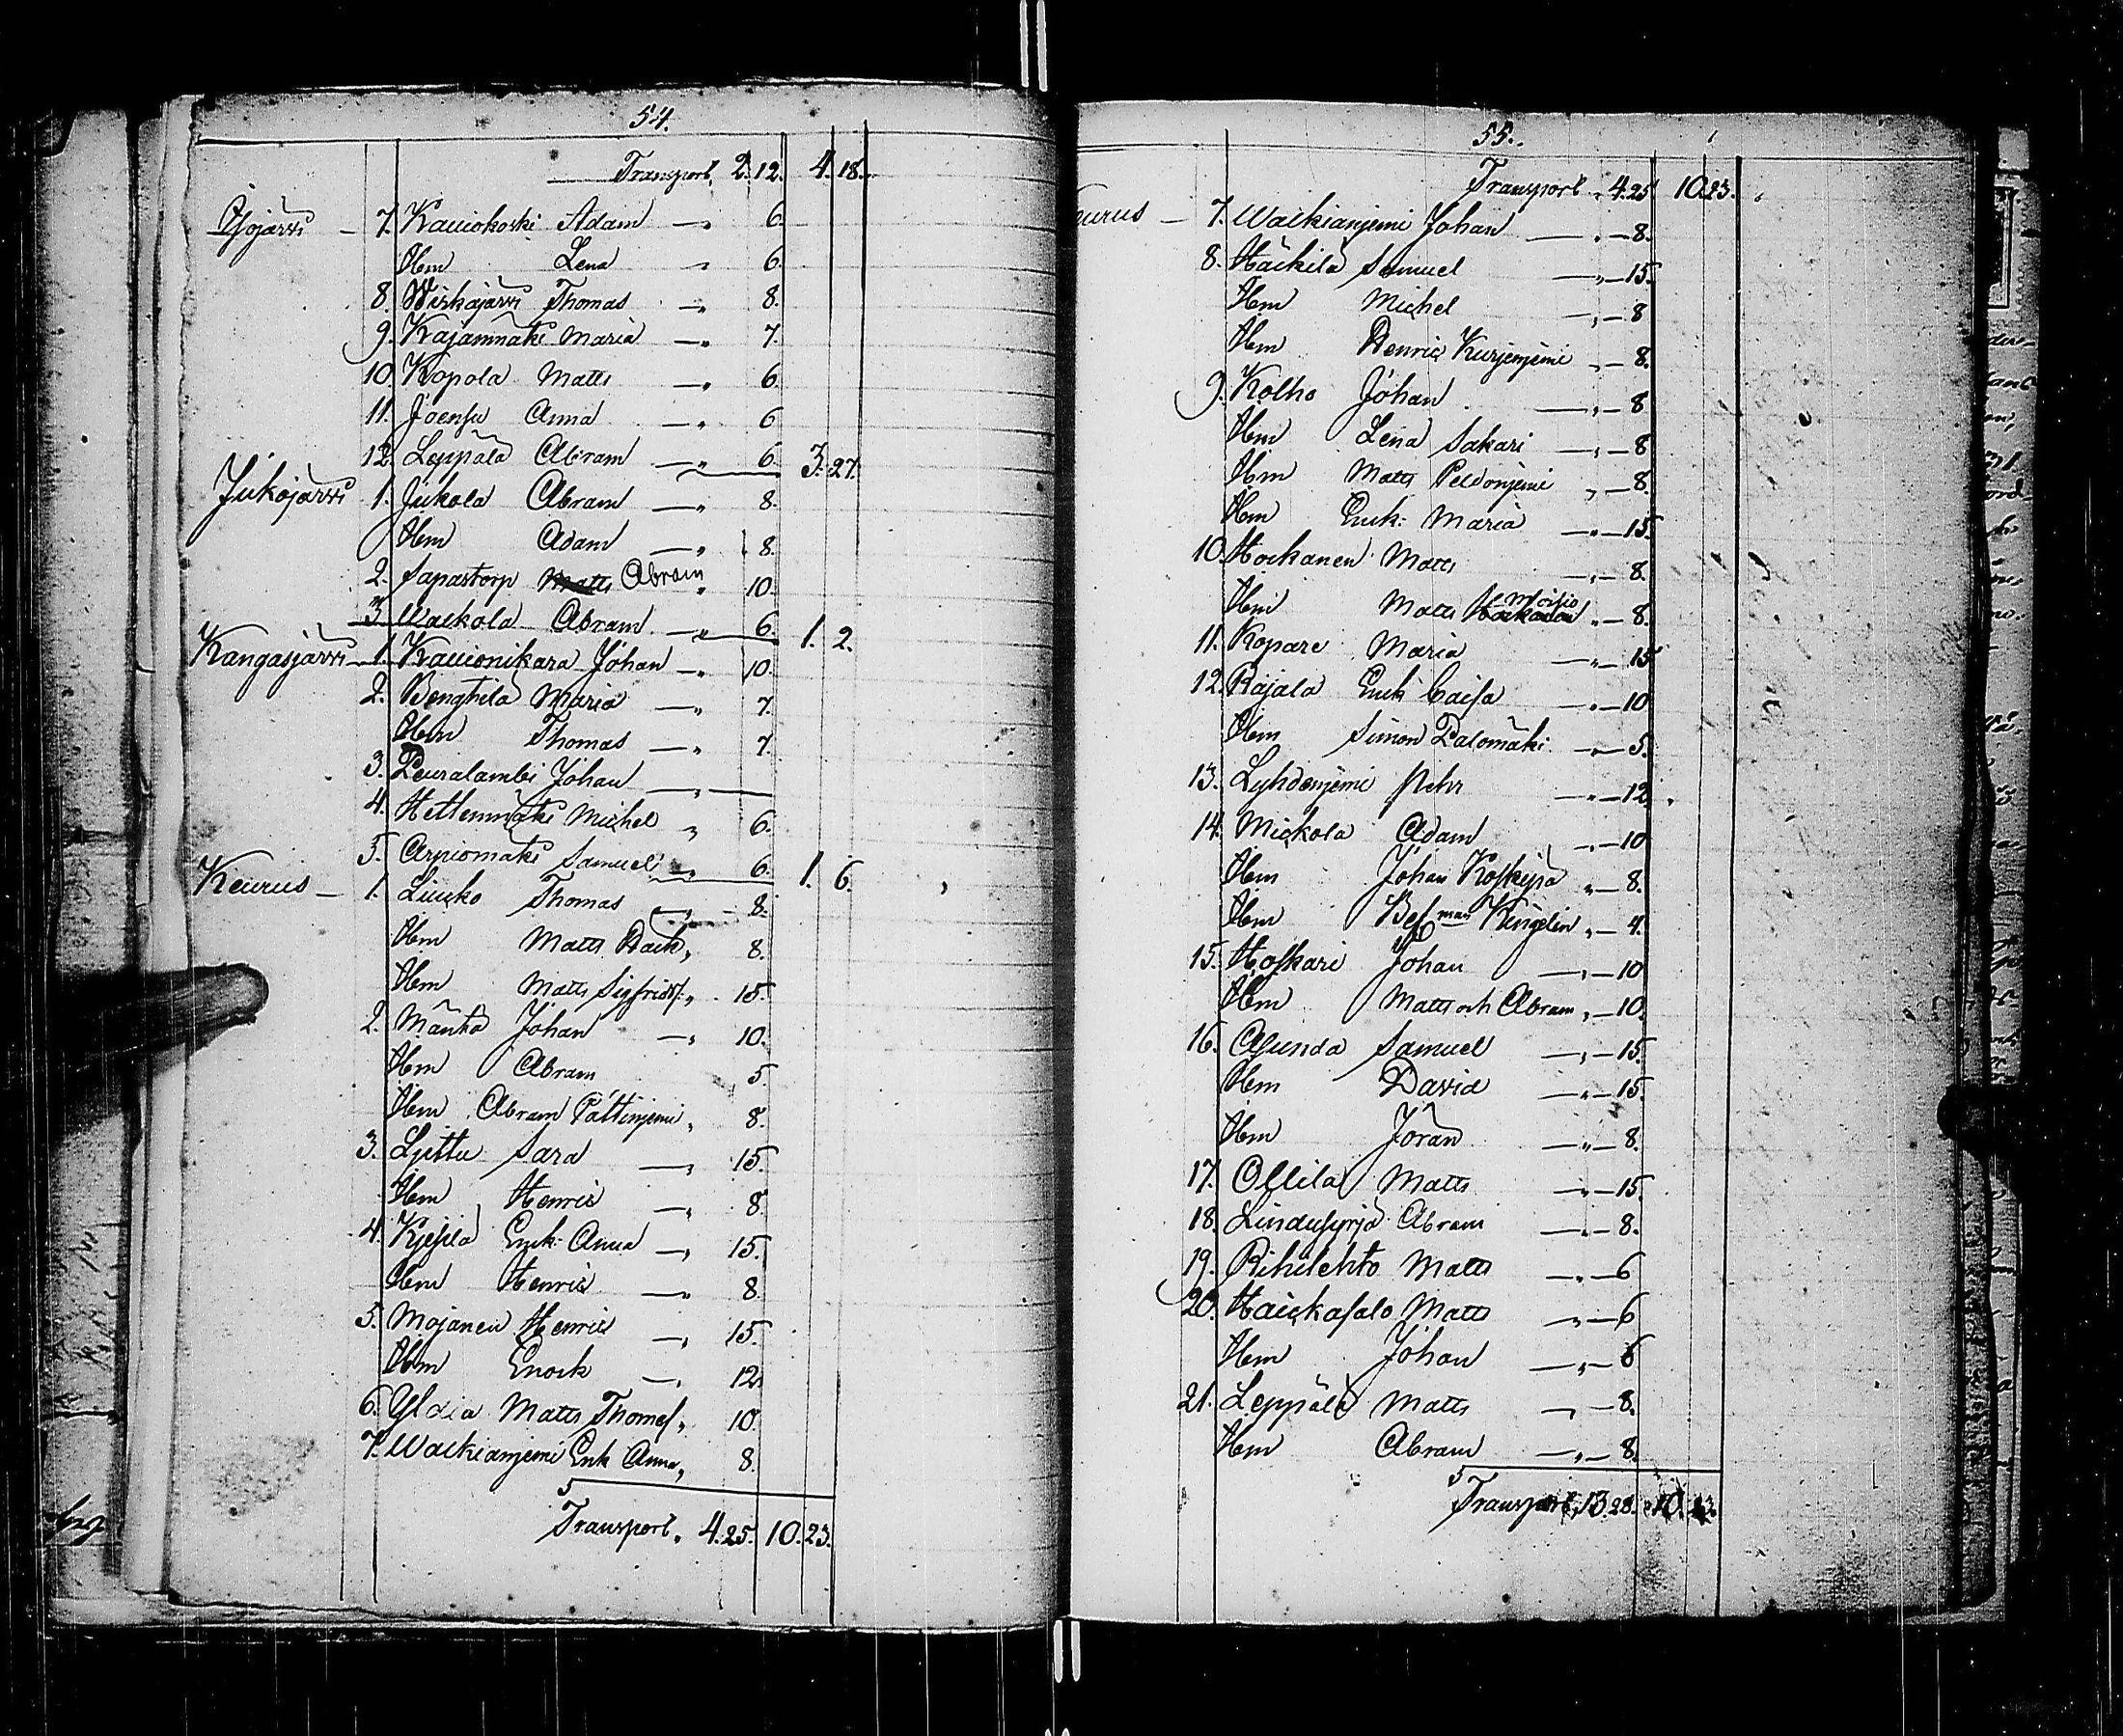 54.
Transport, 2. 12. 4. 18.
7. Kauiokoski Adam — „ 6.
Hem Lena „ 6.
8. Wirkajärvi Thomas — „ 8.
9. Kajanmäki Maria — „ 7.
10. Kopola Matts — „ 6.
11. Joensu Anna — „ 6
12. Leppälä Abram — „ 6. 3. 27.
Jukojärvi 1. Jukola Abram — „ 8.
Hem Adam — „ 8.
2. Sapastorp Matts Abram „ 10.
3. Wackola Abram — „ 6. 1. 2.
Kangasjärvi — 1. Kauionikara Johan — „ 10.
2. Bengtilä Maria — „ 7.
Hem Thomas — „ 7.
3. Peuralambi Johan — „ —
4. Hettenmäki Michel „ 6.
5. Arpiomäki Samuel „ 6. 1. 6.
Keurus — 1. Liucko Thomas — „ — 8.
Hem Matts „ 8.
Hem Matts Sigfridss: „ 15.
2. Mänttä Johan — „ 10.
Hem Abram 5.
Hem Abram Pättinjemi „ 8.
3. Ljettu Sara — „ 15.
Hem Henric — „ 8.
4. Kjefilä Enk: Anna — „ 15.
Hem Henric — „ 8.
5. Mojanen Henric — „ 15.
Hem Enock — „ 12.
6. Yldia Matts Thomæs. „ 10.
7. Walkianjemi Enk Anna „ 8.
5
Transport „ 4. 25. 10. 23.
55.
Transport „ 4. 25 10. 23.
eurus — 7. Walkianjemi Johan — „ — 8.
8. Häkilä Samuel — „ — 15.
Hem Michel — „ — 8
Hem Henric Kurjenjemi „ — 8.
9. Kolho Johan — „ — 8
Hem Lena Sakari — „ — 8
Hem Matts Peldonjemi „ — 8.
Hem Enk: Maria — „ — 15.
10. Hockanen Matts — „ — 8.
Hem Matts „ — 8.
11. Kopare Maria — „ — 15
12. Rajala Enk Caisa — „ — 10
Hem Simon Palomäki — „ — 5.
13. Lyhdenjemi Pehr — „ — 12.
14. Mickola Adam — „ — 10
Hem Johan Koskipä „ — 8.
Hem Bef:man Kingelin „ — 4.
15. Hoskari Johan — „ — 10
Hem Matts och Abram „ — 10.
16. Asunda Samuel — „ — 15.
Hem David — „ — 15.
Hem Jöran — „ — 8.
17. Ollila Matts — „ — 15.
18. Lindusyrjä Abram — „ — 8.
19. Rihilehto Matts — „ — 6
20. Haickasalo Matts „ — 6
Hem Johan — „ — 6
21. Leppälä Matts — „ — 8.
Hem Abram — „ — 8.
5
Transport, 13. 28. 10. 23.